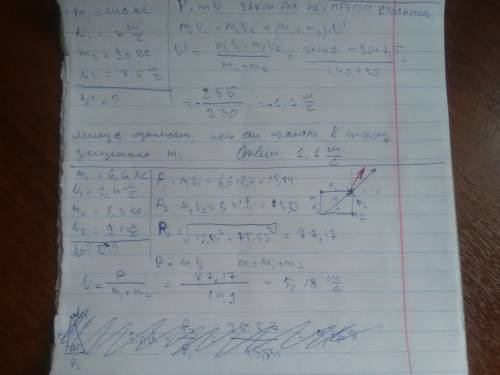 m₁ = 140 кг
V₁ = 3 м/с
m₂ = 90 кг
V₂ = 7,5 м/с
V' = ?
P = mV закон для неупругого
m₁V₁ - m₂V₂ = (m₁ + m₂)·V'
V' = (m₁V₁ - m₂V₂)/(m₁ + m₂) = (3·140 - 90·7,5)/(140+90) =
= -255/230 = -1,1 м/с
минус означает, что они в сторону
m₁ Ответ 1,1 м/с
m₁ = 6,6 кг
V₁ = 2,4 м/с
m₂ = 8,3 кг
V₂ = 9,1 м/с
P₁ = m₁V₁ = 6,6·2,4 = 15,84
P₂ = m₂V₂ = 8,3·9,1 = 75,53
P₀ = √(15,84² + 75,53²) = 77,17
P = mV m = m₁ + m₂
V = P/(m₁+m₂) = 77,17/14,9 = 5,18 м/с
P₂